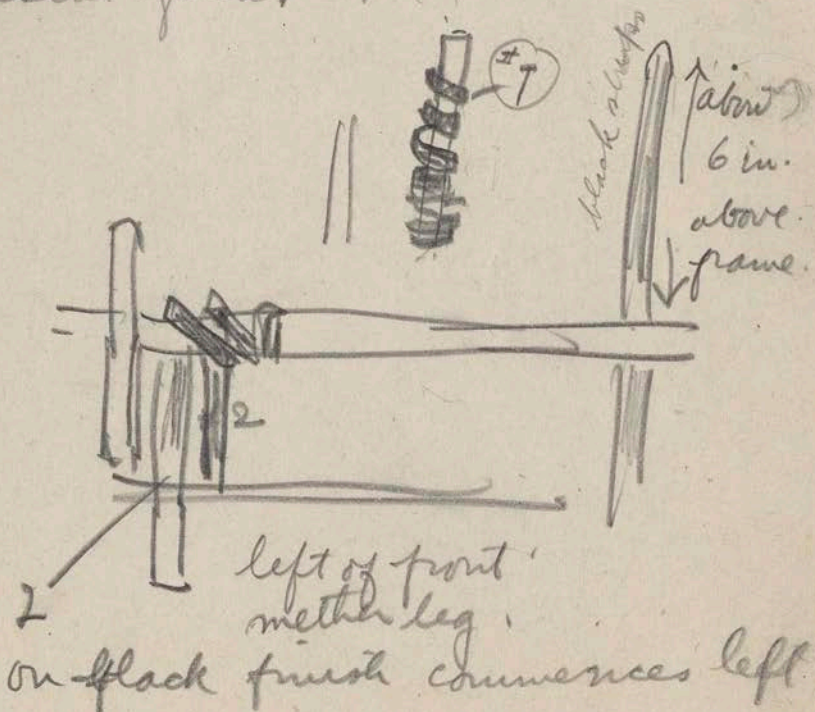 #7
black straps
about
6 in.
above.
frame.
2
2
left of front
nether leg.
on black finish commences left